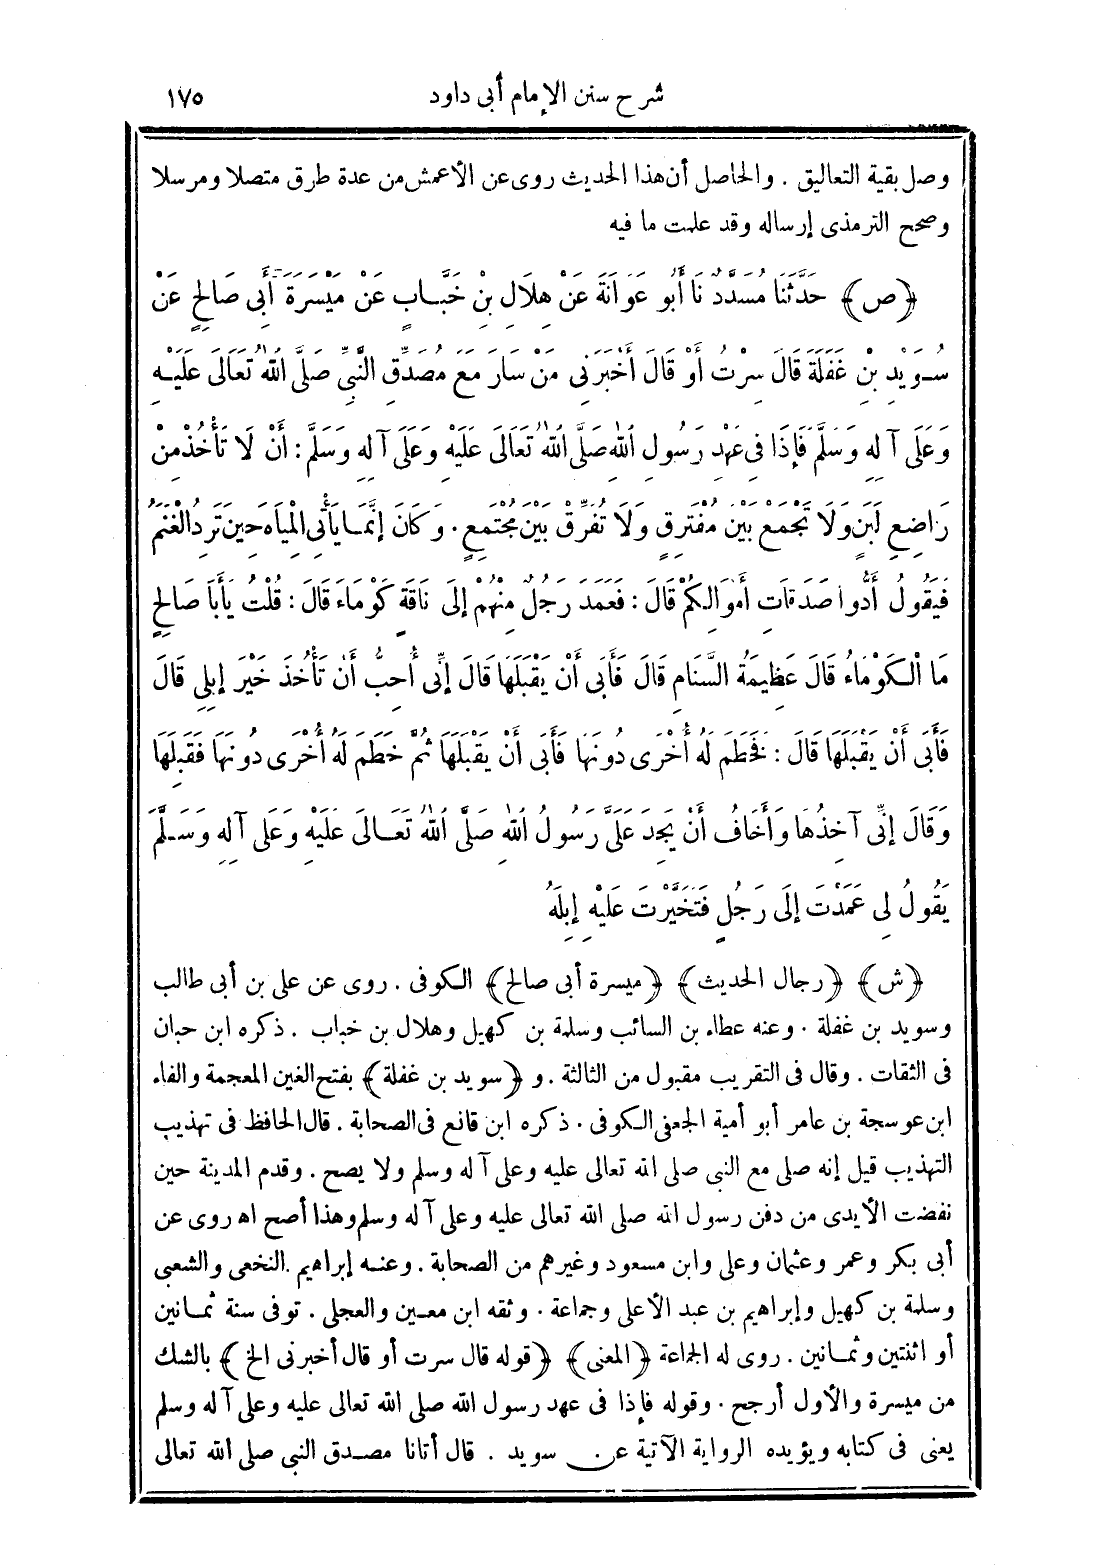 شرح سنن الإمام أبى داود ١٧٥
وصل بقية التعاليق . والحاصل أن هذا الحديث روى عن الأعمش من عدة طرق متصلا ومرسلا
وصحح الترمذى إرساله وقد علمت ما فيه
﴿ص﴾ حَدَّثَنَا مُسَدَّدٌ نَا أَبُو عَوَانَةَ عَنْ هِلَالِ بْنِ خَبَّابٍ عَنْ مَيْسَرَةَ أَبِى صَالِحٍ عَنْ
سُوَيْدِ بْنِ غَفَلَةَ قَالَ سِرْتُ أَوْ قَالَ أَخْبَرَنِى مَنْ سَارَ مَعَ مُصَدِّقِ النَّبِىِّ صَلَّى اللهُ تَعَالَى عَلَيْهِ
وَعَلَى آلِهِ وَسَلَّمَ فَإِذَا فِى عَهْدِ رَسُولِ اللهِ صَلَّى اللهُ تَعَالَى عَلَيْهِ وَعَلَى آلِهِ وَسَلَّمَ : أَنْ لَا تَأْخُذَ مِنْ
رَاضِعِ لَبَنٍ وَلَا تَجْمَعْ بَيْنَ مُفْتَرِقٍ وَلَا تُفَرِّقْ بَيْنَ مُجْتَمِعٍ . وَكَانَ إِنَّمَا يَأْتِى الْمِيَاهَ حِينَ تَرِدُ الْغَنَمُ
فَيَقُولُ أَدُّوا صَدَقَاتِ أَمْوَالِكُمْ قَالَ : فَعَمَدَ رَجُلٌ مِنْهُمْ إِلَى نَاقَةٍ كَوْمَاءَ قَالَ : قُلْتُ يَا أَبَا صَالِحٍ
مَا الْكَوْمَاءُ قَالَ عَظِيمَةُ السَّنَامِ قَالَ فَأَبَى أَنْ يَقْبَلَهَا قَالَ إِنِّى أُحِبُّ أَنْ تَأْخُذَ خَيْرَ إِبِلِى قَالَ
فَأَبَى أَنْ يَقْبَلَهَا قَالَ : فَخَطَمَ لَهُ أُخْرَى دُونَهَا فَأَبَى أَنْ يَقْبَلَهَا ثُمَّ خَطَمَ لَهُ أُخْرَى دُونَهَا فَقَبِلَهَا
وَقَالَ إِنِّى آخِذُهَا وَأَخَافُ أَنْ يَجِدَ عَلَىَّ رَسُولُ اللهِ صَلَّى اللهُ تَعَالَى عَلَيْهِ وَعَلَى آلِهِ وَسَلَّمَ
يَقُولُ لِى عَمَدْتَ إِلَى رَجُلٍ فَتَخَيَّرْتَ عَلَيْهِ إِبِلَهُ
﴿ش﴾ ﴿رجال الحديث﴾ ﴿ميسرة أبى صالح﴾ الكوفى . روى عن على بن أبى طالب
وسويد بن غفلة . وعنه عطاء بن السائب وسلمة بن كهيل وهلال بن خباب . ذكره ابن حبان
فى الثقات . وقال فى التقريب مقبول من الثالثة . و ﴿سويد بن غفلة﴾ بفتح الغين المعجمة والفاء
ابن عوسجة بن عامر أبو أمية الجعفى الكوفى . ذكره ابن قانع فى الصحابة . قال الحافظ فى تهذيب
التهذيب قيل إنه صلى مع النبى صلى الله تعالى عليه وعلى آله وسلم ولا يصح . وقدم المدينة حين
نفضت الأيدى من دفن رسول الله صلى الله تعالى عليه وعلى آله وسلم وهذا أصح اه روى عن
أبى بكر وعمر وعثمان وعلى وابن مسعود وغيرهم من الصحابة . وعنه إبراهيم النخعى والشعبى
وسلمة بن كهيل وإبراهيم بن عبد الأعلى وجماعة . وثقه ابن معين والعجلى . توفى سنة ثمانين
أو اثنتين وثمانين . روى له الجماعة ﴿المعنى﴾ ﴿قوله قال سرت أو قال أخبرنى الخ﴾ بالشك
من ميسرة والأول أرجح . وقوله فإذا فى عهد رسول الله صلى الله تعالى عليه وعلى آله وسلم
يعنى فى كتابه ويؤيده الرواية الآتية عن سويد . قال أتانا مصدق النبى صلى الله تعالى